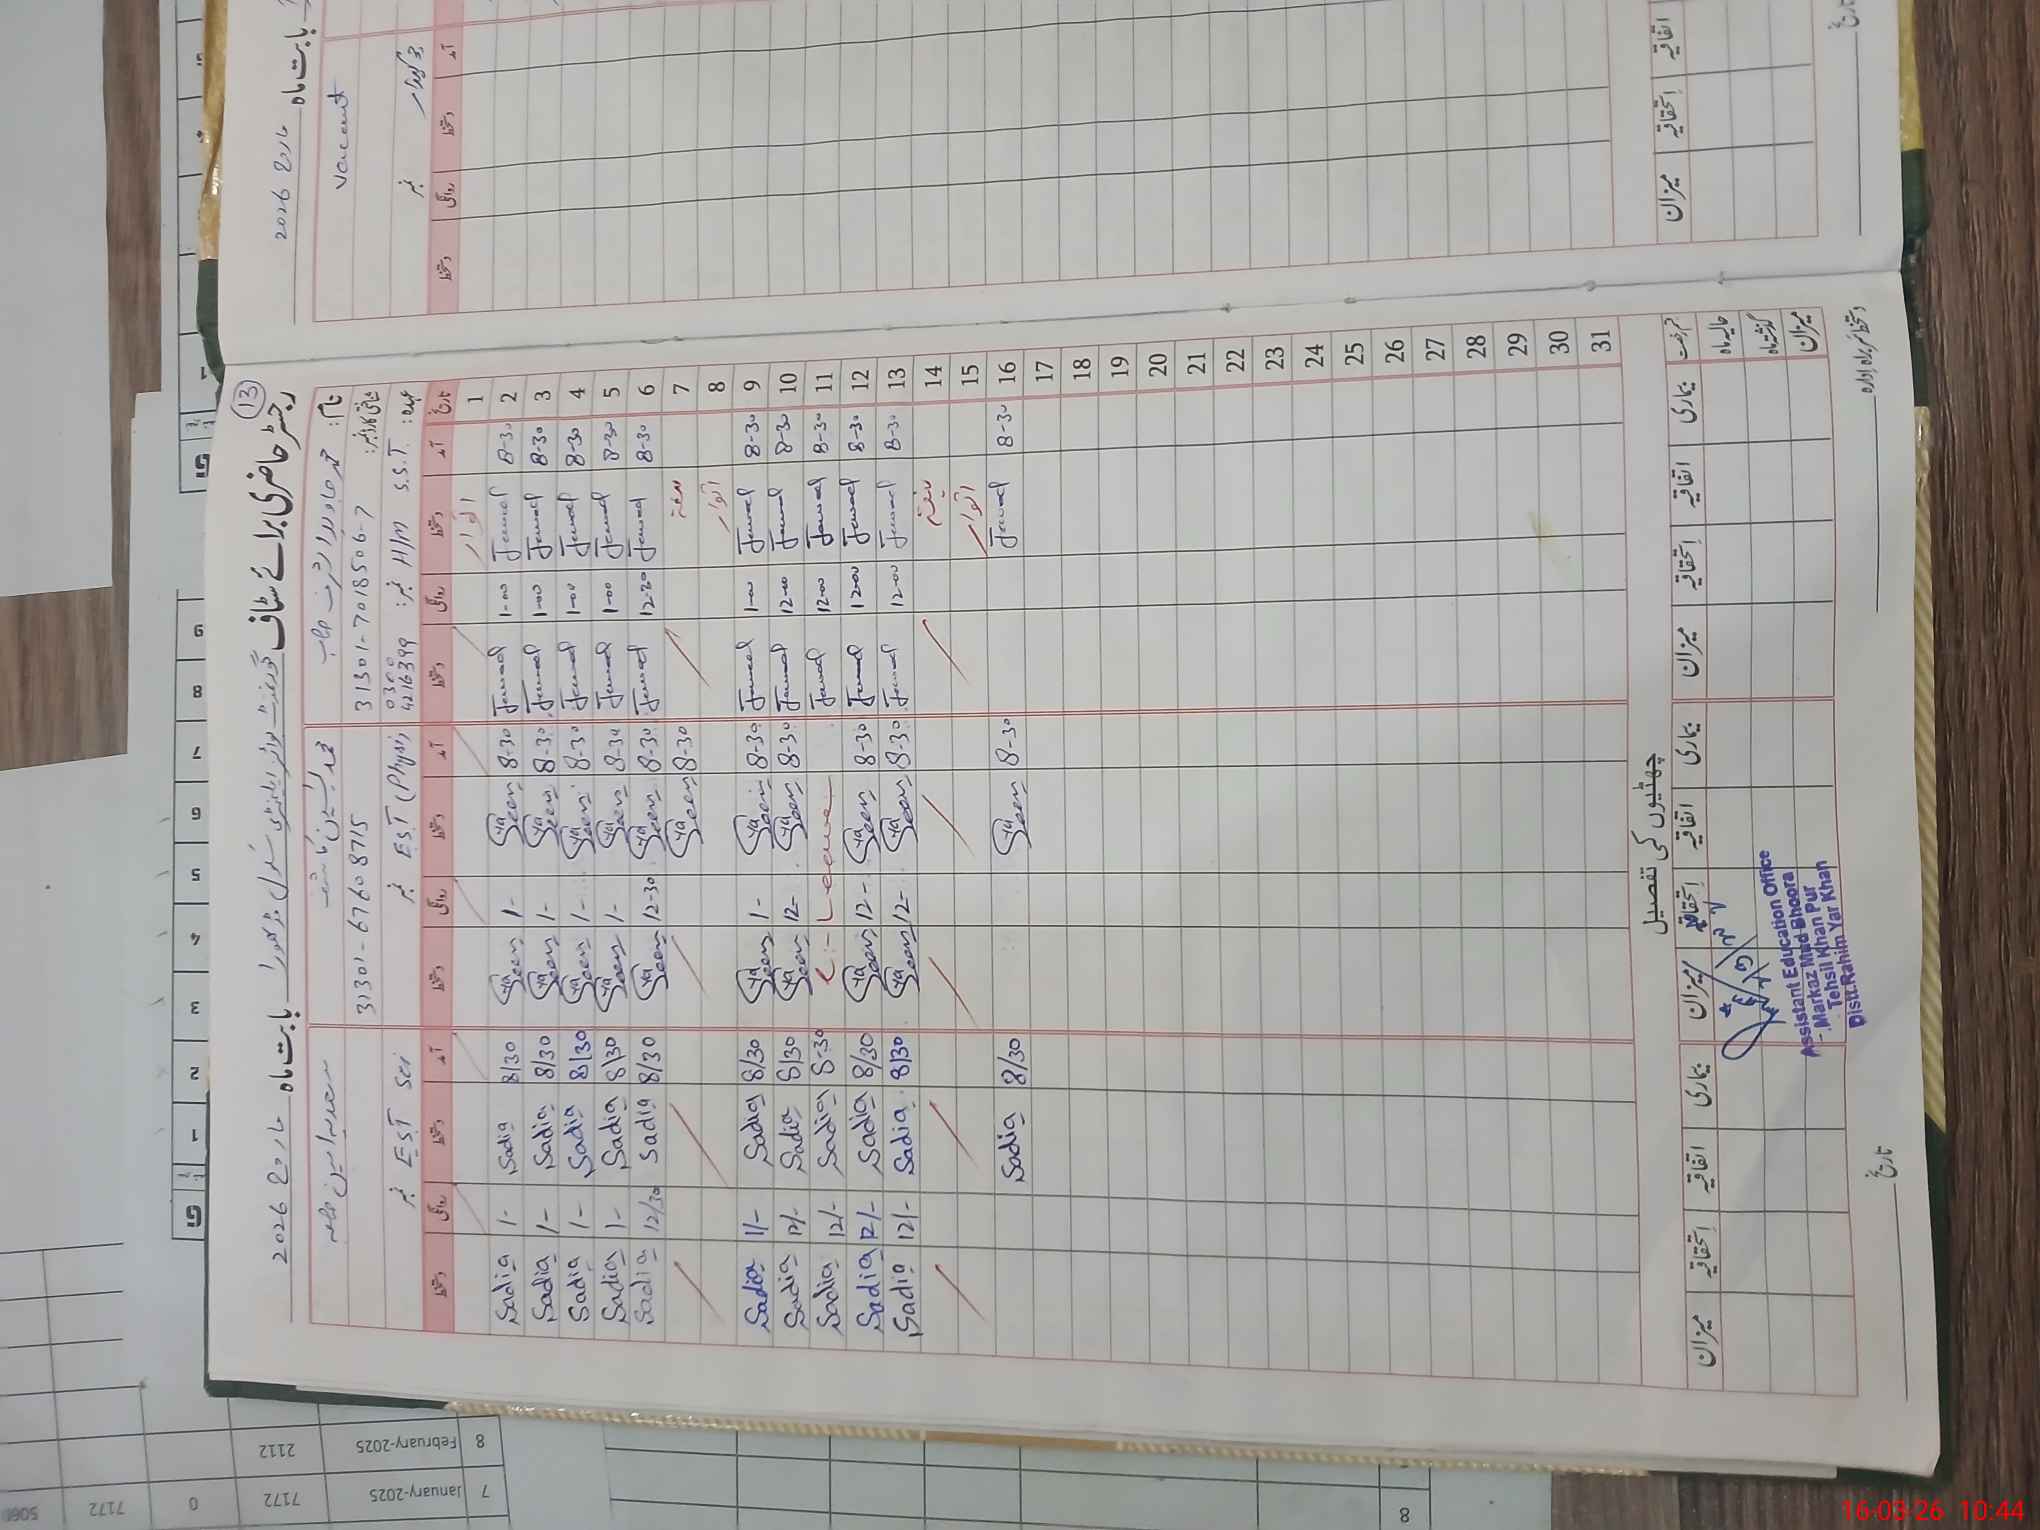 13
رجسٹر حاضری برائے سٹاف گورنمنٹ بوائز ایلیمنٹری سکول بابت ماہ مارچ 2026
نام:
شناختی کارڈ نمبر: 31301-7018506-7
عہدہ: S.S.T H/M نمبر: 0300 4216399
31301-67608715
EST (Phys) نمبر
سعدیہ
EST Sci نمبر
تاریخ آمد دستخط روانگی دستخط آمد دستخط روانگی دستخط آمد دستخط روانگی دستخط
1 اتوار
2 8-30 Jawad 1-00 Jawad 8-30 Yaseen 1- Yaseen 8/30 Sadia 1- Sadia
3 8-30 Jawad 1-00 Jawad 8-30 Yaseen 1- Yaseen 8/30 Sadia 1- Sadia
4 8-30 Jawad 1-00 Jawad 8-30 Yaseen 1- Yaseen 8/30 Sadia 1- Sadia
5 8-30 Jawad 1-00 Jawad 8-30 Yaseen 1- Yaseen 8/30 Sadia 1- Sadia
6 8-30 Jawad 12-30 Jawad 8-30 Yaseen 12-30 Yaseen 8/30 Sadia 12/30 Sadia
7 ہفتہ 8-30 Yaseen
8 اتوار
9 8-30 Jawad 1-00 Jawad 8-30 Yaseen 1- Yaseen 8/30 Sadia 1/- Sadia
10 8-30 Jawad 12-00 Jawad 8-30 Yaseen 12- Yaseen 8/30 Sadia 12/- Sadia
11 8-30 Jawad 12-00 Jawad Leave 8-30 Sadia 12/- Sadia
12 8-30 Jawad 12-00 Jawad 8-30 Yaseen 12- Yaseen 8/30 Sadia 12/- Sadia
13 8-30 Jawad 12-00 Jawad 8-30 Yaseen 12- Yaseen 8/30 Sadia 12/- Sadia
14 ہفتہ
15 اتوار
16 8-30 Jawad 8-30 Yaseen 8/30 Sadia
17
18
19
20
21
22
23
24
25
26
27
28
29
30
31
چھٹیوں کی تفصیل
قسم رخصت بیماری اتفاقیہ استحقاقیہ میزان بیماری اتفاقیہ استحقاقیہ میزان بیماری اتفاقیہ استحقاقیہ میزان
حالیہ ماہ
گذشتہ ماہ
میزان
Assistant Education Office
Markaz Mud Bhoora
Tehsil Khan Pur
Distt.Rahim Yar Khan
دستخط سربراہ ادارہ
تاریخ
بابت ماہ مارچ 2026
Vacant
چوکیدار نمبر
آمد دستخط روانگی دستخط
اتفاقیہ استحقاقیہ میزان
تاریخ
8 February-2025 2112
7 January-2025 7172 0 7172
8
16-03-26 10:44